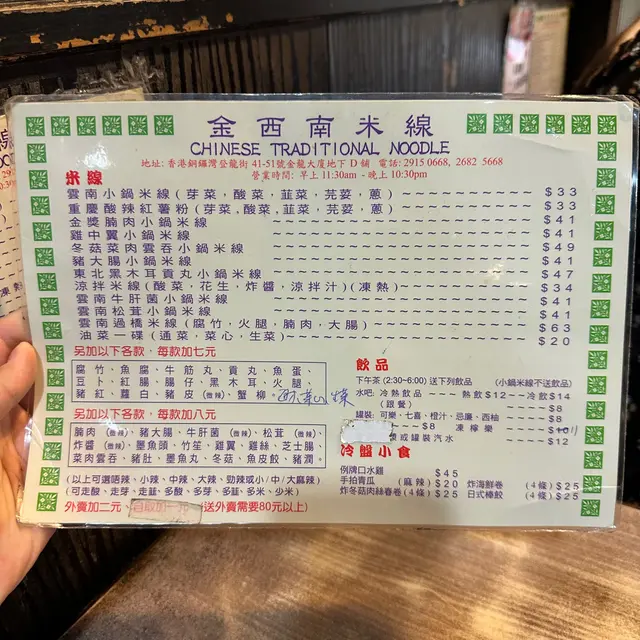 金西南米線
CHINESE TRADITIONAL NOODLE
地址: 香港銅鑼灣登龍街 41-51號金龍大廈地下 D 舖 電話: 2915 0668, 2682 5668
營業時間: 早上 11:30am - 晚上 10:30pm
米線
雲南小鍋米線 (芽菜, 酸菜, 韮菜, 芫荽, 蔥) $33
重慶酸辣紅薯粉 (芽菜, 酸菜, 韮菜, 芫荽, 蔥) $33
金獎腩肉小鍋米線 $41
雞中翼小鍋米線 $41
冬菇菜肉雲吞小鍋米線 $49
豬大腸小鍋米線 $41
東北黑木耳貢丸小鍋米線 $47
涼拌米線 (酸菜, 花生, 炸醬, 涼拌汁) (凍熱) $34
雲南牛肝菌小鍋米線 $41
雲南松茸小鍋米線 $41
雲南過橋米線 (腐竹, 火腿, 腩肉, 大腸) $63
油菜一碟 (通菜, 菜心, 生菜) $20
另加以下各款, 每款加七元
腐竹, 魚腐, 牛筋丸, 貢丸, 魚蛋,
豆卜, 紅腸, 腸仔, 黑木耳, 火腿,
豬紅, 蘿白, 豬皮 (微辣), 蟹柳,
另加以下各款, 每款加八元
腩肉 (微辣), 豬大腸, 牛肝菌 (微辣), 松茸 (微辣),
炸醬 (微辣), 墨魚頭, 竹笙, 雞翼, 雞絲, 芝士腸
菜肉雲吞, 豬肚, 墨魚丸, 冬菇, 魚皮餃, 豬潤,
(以上可選走辣, 小辣, 中辣, 大辣, 勁辣或小/中/大麻辣)
(可走酸, 走芽, 走韮, 多酸, 多芽, 多韮, 多米, 少米)
外賣加二元, 自取加一元 (送外賣需要80元以上)
飲品
下午茶 (2:30~6:00) 送下列飲品 (小鍋米線不送飲品)
水吧: 冷熱飲品 熱飲 $12 冷飲 $14
(跟餐) $8
罐裝: 可樂, 七喜, 橙汁, 忌廉, 西柚 $8
$8 凍檸樂 $11
或罐裝汽水 $12
冷盤小食
例牌口水雞 $45
手拍青瓜 (麻辣) $20 炸海鮮卷 (4條) $25
炸冬菇肉絲春卷 (4條) $25 日式棒餃 (4條) $25